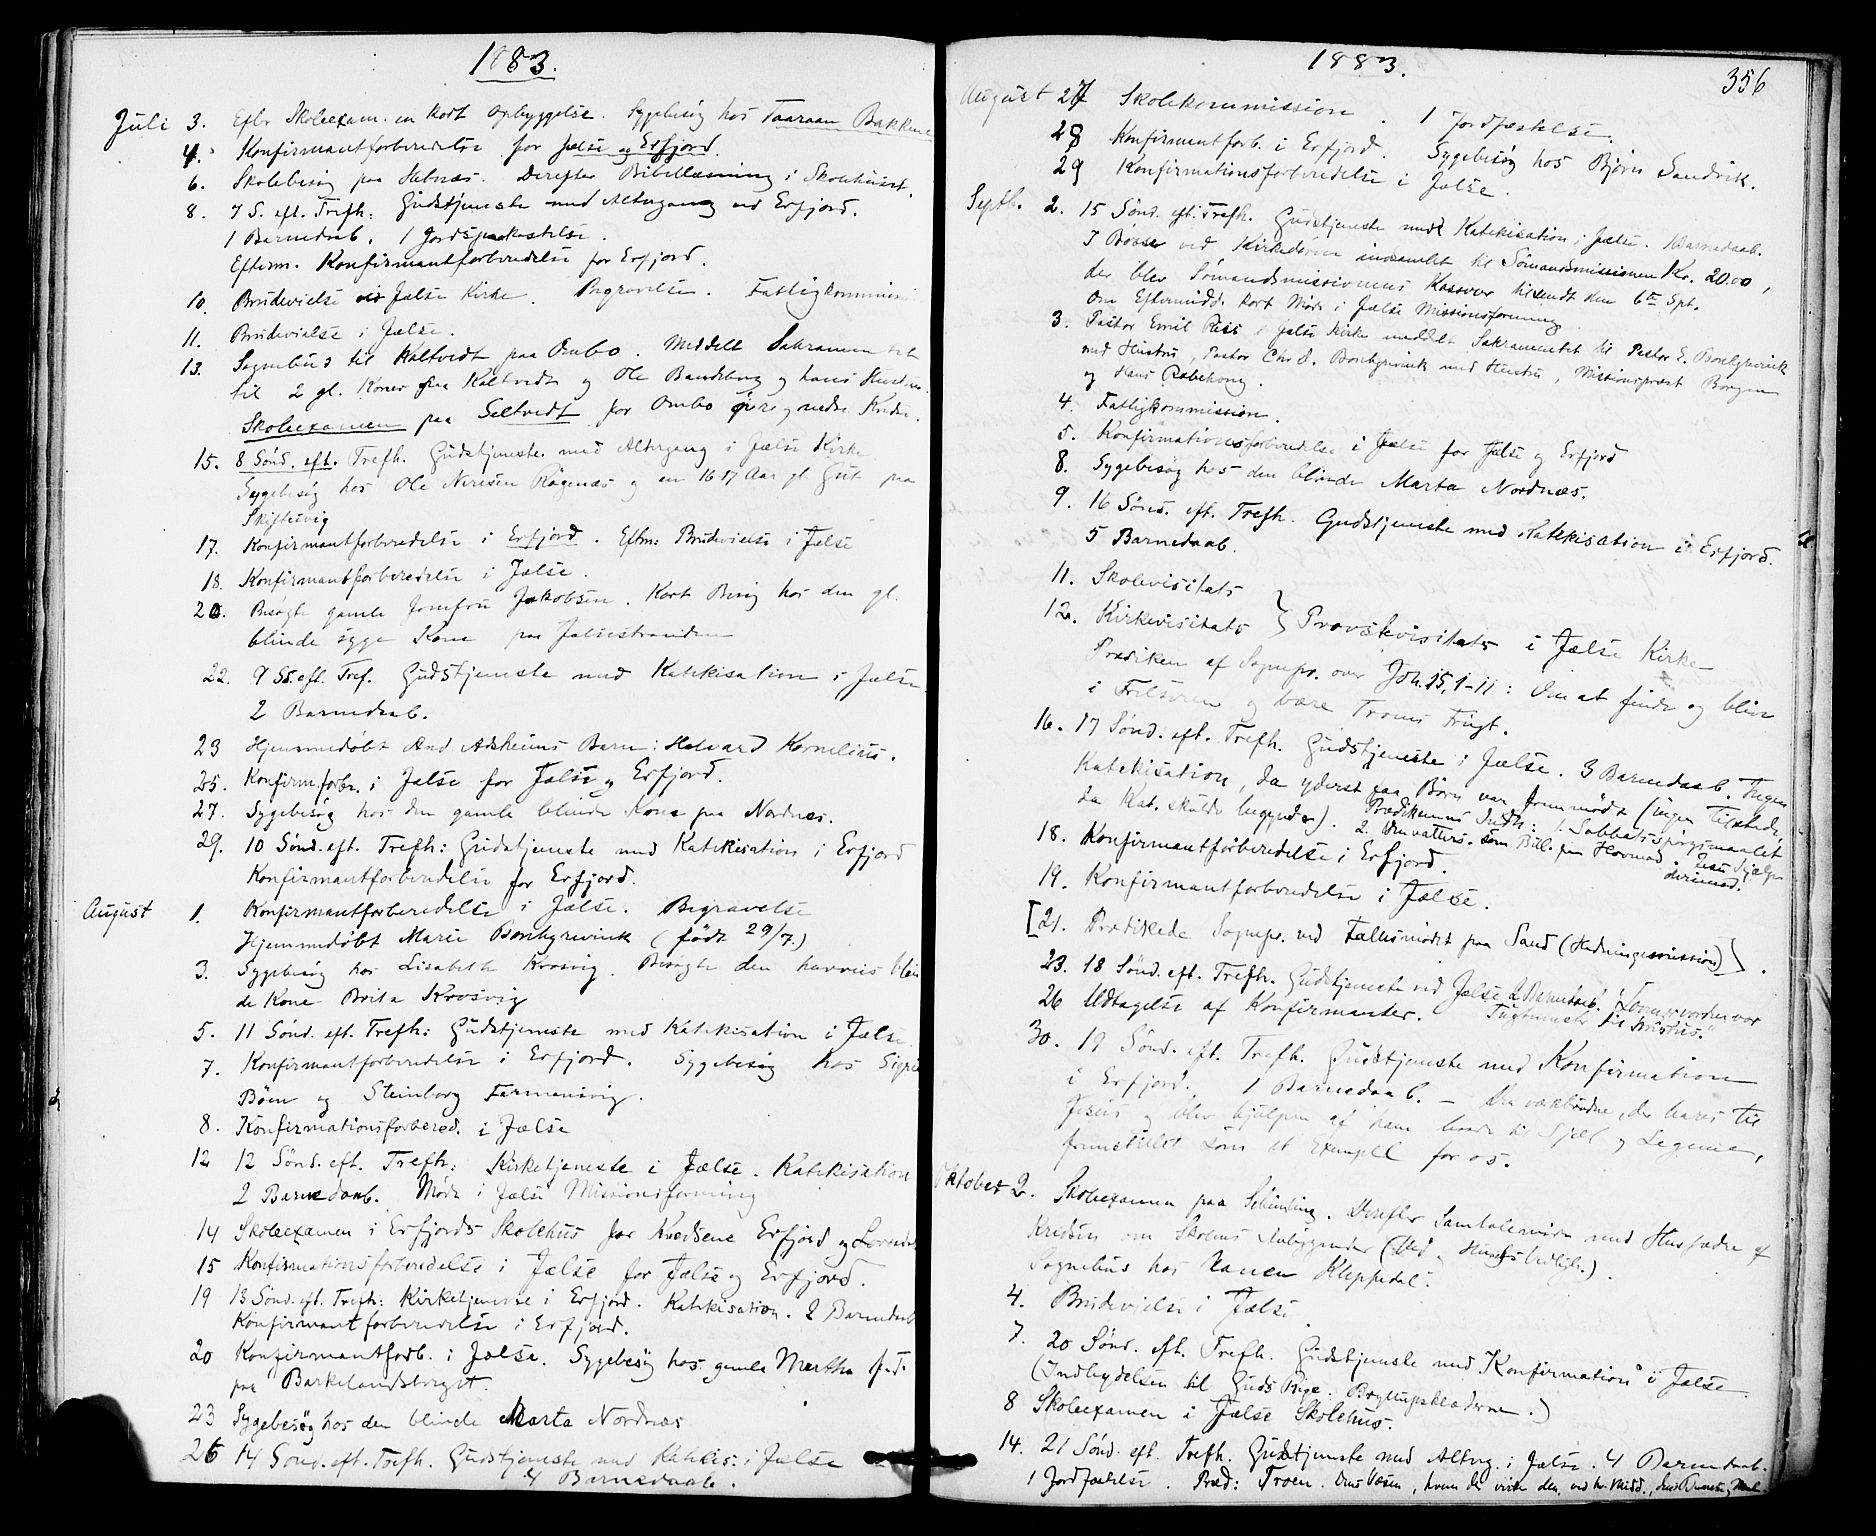 1883.
Juli 3. Efter Skoleexam. en kort Opbyggelse. Sygebesøg hos Taaraan Bakkene
4. Konfirmantforberedelse for Jælse og Erfjord.
6. Skolebesøg paa Halnæs. Derefter Bibellæsning i Skolehuset.
8. 7 S. eft. Trefh: Gudstjeneste med Altergang ved Erfjord.
1 Barnedaab. 1 Jordspaakastelse.
Efterm. Konfirmantforberedelse for Erfjord.
10. Brudevielse Jælse Kirke. Begravelse. Fattigkommission
11. Brudevielse i Jælse.
13. Sognebud til Kaltvedt paa Ombo. Meddelt Sakramentet
til 2 gl. Koner fra Kaltvedt og Ole Bandeberg og hans Hustru.
Skoleexamen paa Seltvedt for Ombo øvre og nedre Kreds.
15. 8 Sønd. eft. Trefh. Gudstjeneste med Altergang i Jælse Kirke
Sygebesøg hos Ole Neresen Ragenæs og en 16-17 Aar gl Gut paa
Skiftesvig
17. Konfirmantforberedelse i Erfjord. Eftm: Brudevielse i Jælse
18. Konfirmantforberedelse i Jælse.
20. Besøgte gamle Jomfru Jakobsen. Kort Besøg hos den gl.
blinde syge Kone paa Jælsestranden
22. 9 S. eft. Tref. Gudstjeneste med Katekisation i Jælse.
2 Barnedaab.
23 Hjemmedøbt And. Adsheims Barn: Halvard Kornelius.
25. Konfirm.forbr. i Jælse for Jælse og Erfjord.
27. Sygebesøg hos den gamle blinde Kone paa Nordnæs.
29. 10 Sønd. eft. Trefh: Gudstjeneste med Katekisation i Erfjord
Konfirmantforberedelse for Erfjord.
August 1. Konfirmantforberedelse i Jælse. Begravelse
Hjemmedøbt Marie Borchgrevink (født 29/7.)
3. Sygebesøg hos Lisabeth Krosvig. Besøgte den blin
de Kone Brita Krosvig
5. 11 Sønd. eft. Trefh: Gudstjeneste med Katekisation i Jælse.
7. Konfirmantforberedelse i Erfjord. Sygebesøg hos Sigri
Bøen og Steinborg Farmansvig.
8. Konfirmationsforbered. i Jælse
12 12 Sønd. eft. Trefh: Kirketjeneste i Jælse. Katekisation
2 Barnedaab. Møde i Jælse Missionsforening
14 Skoleexamen i Erfjords Skolehus for Kredsene Erfjord og
15 Konfirmationsforberedelse i Jælse for Jælse og Erfjord.
19 13 Sønd. eft. Trefh: Kirketjeneste i Erfjord. Katekisation. 2 Barnedaab
Konfirmantforberedelse i Erfjord.
20 Konfirmantforb. i Jælse. Sygebesøg hos gamle Martha
paa Barkelandsbryget.
23 Sygebesøg hos den blinde Marta Nordnæs
26 14 Sønd. eft. Trefh. Gudstjeneste med Katekis: i Jælse
4 Barnedaab.
1883.
356
August 27 Skolekommission. 1 Jordfæstelse.
28 Konfirmantforb. i Erfjord. Sygebesøg hos Bjørn Sandvik.
29 Konfirmationsforberedelse i Jælse.
Septb. 2. 15 Sønd. eft. Trefh. Gudstjeneste med Katekisation i Jælse. 1 Barnedaab.
I Bøsse ved Kirkedøren indsamlet til Sømandsmissionen Kr. 20.00,
der blev Sømandsmissionens Kasserer tilsendt den 6te Spt.
Om Eftermidd. kort Møde i Jælse Missionsforening
3. Pastor Emil Riis i Jælse Kirke meddelt Sakramentet til Pastor E. Borchgrevink
med Hustru, Pastor Chr. D. Borchgrevink med Hustru, Missionsprest Borgen
og Hans Rabehong.
4. Fattigkommission.
5. Konfirmationsforberedelse i Jælse for Jælse og Erfjord
8. Sygebesøg hos den blinde Marta Nordnæs.
9. 16 Sønd. eft. Trefh. Gudstjeneste med Katekisation i Erfjord.
5 Barnedaab.
11. Skolevisitats
12. Kirkevisitats } Provstevisitats i Jælse Kirke
Prædiken af Sognepr. over Joh. 15, 1-11: Om at finde og blive
i Frelseren og bære Troens Frugt.
16. 17 Sønd. eft. Trefh. Gudstjeneste i Jælse. 3 Barnedaab. Ingen
Katekisation, da yderst faa Børn var fremmødt (ingen tilstede,
da Kat. skulde begynde). Prædikenens Indh: 1. Sabbatsspørgsmaalet
2. Vattersot som Bill. paa Hovmod. Jesu Hjælp
derimod.
18. Konfirmantforberedelse i Erfjord.
19. Konfirmantforberedelse i Jælse.
[21. Prædikede Sognepr. ved Fællesmødet paa Sand (Hedningemission)].
23. 18 Sønd. eft. Trefh. Gudstjeneste ved Jælse. 2 Barnedaab. "Loven vorden vor
Tugtemester til Kristus."
26 Udtagelse af Konfirmanter.
30. 19 Sønd. eft. Trefh. Gudstjeneste med Konfirmation
i Erfjord. 1 Barnedaab. — Den værkbrudne, der bares til
Jesus og blev hjulpen af ham baade til Sjæl og Legeme,
fremstillet som et Exempel for os.
Oktober 2. Skoleexamen paa. Derefter Samtalemøde med Husfædre af
Kredsen om Skolens Anliggender.
Sognebud hos Maren Kleppedal.
4. Brudevielse i Jælse.
7. 20 Sønd. eft. Trefh. Gudstjeneste med "Konfirmation" i Jælse
(Indbydelsen til Guds Rige. Bryllupsklæderne.)
8 Skoleexamen i Jælse Skolehus.
14. 21 Sønd. eft. Trefh. Gudstjeneste med Altrg. i Jælse. 4 Barnedaab.
1 Jordfæstelse. Præd: Troen. Dens Væsen, hvem der virker den, ved hv. Midd.